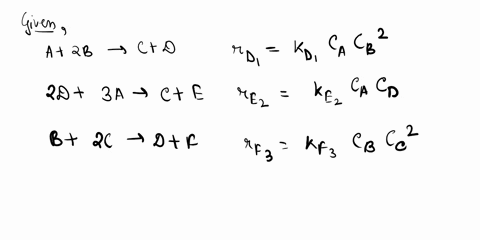 Given,
A + 2B → C + D r_D₁ = K_D₁ C_A C_B²
2D + 3A → C + E r_E₂ = K_E₂ C_A C_D
B + 2C → D + F r_F₃ = K_F₃ C_B C_C²